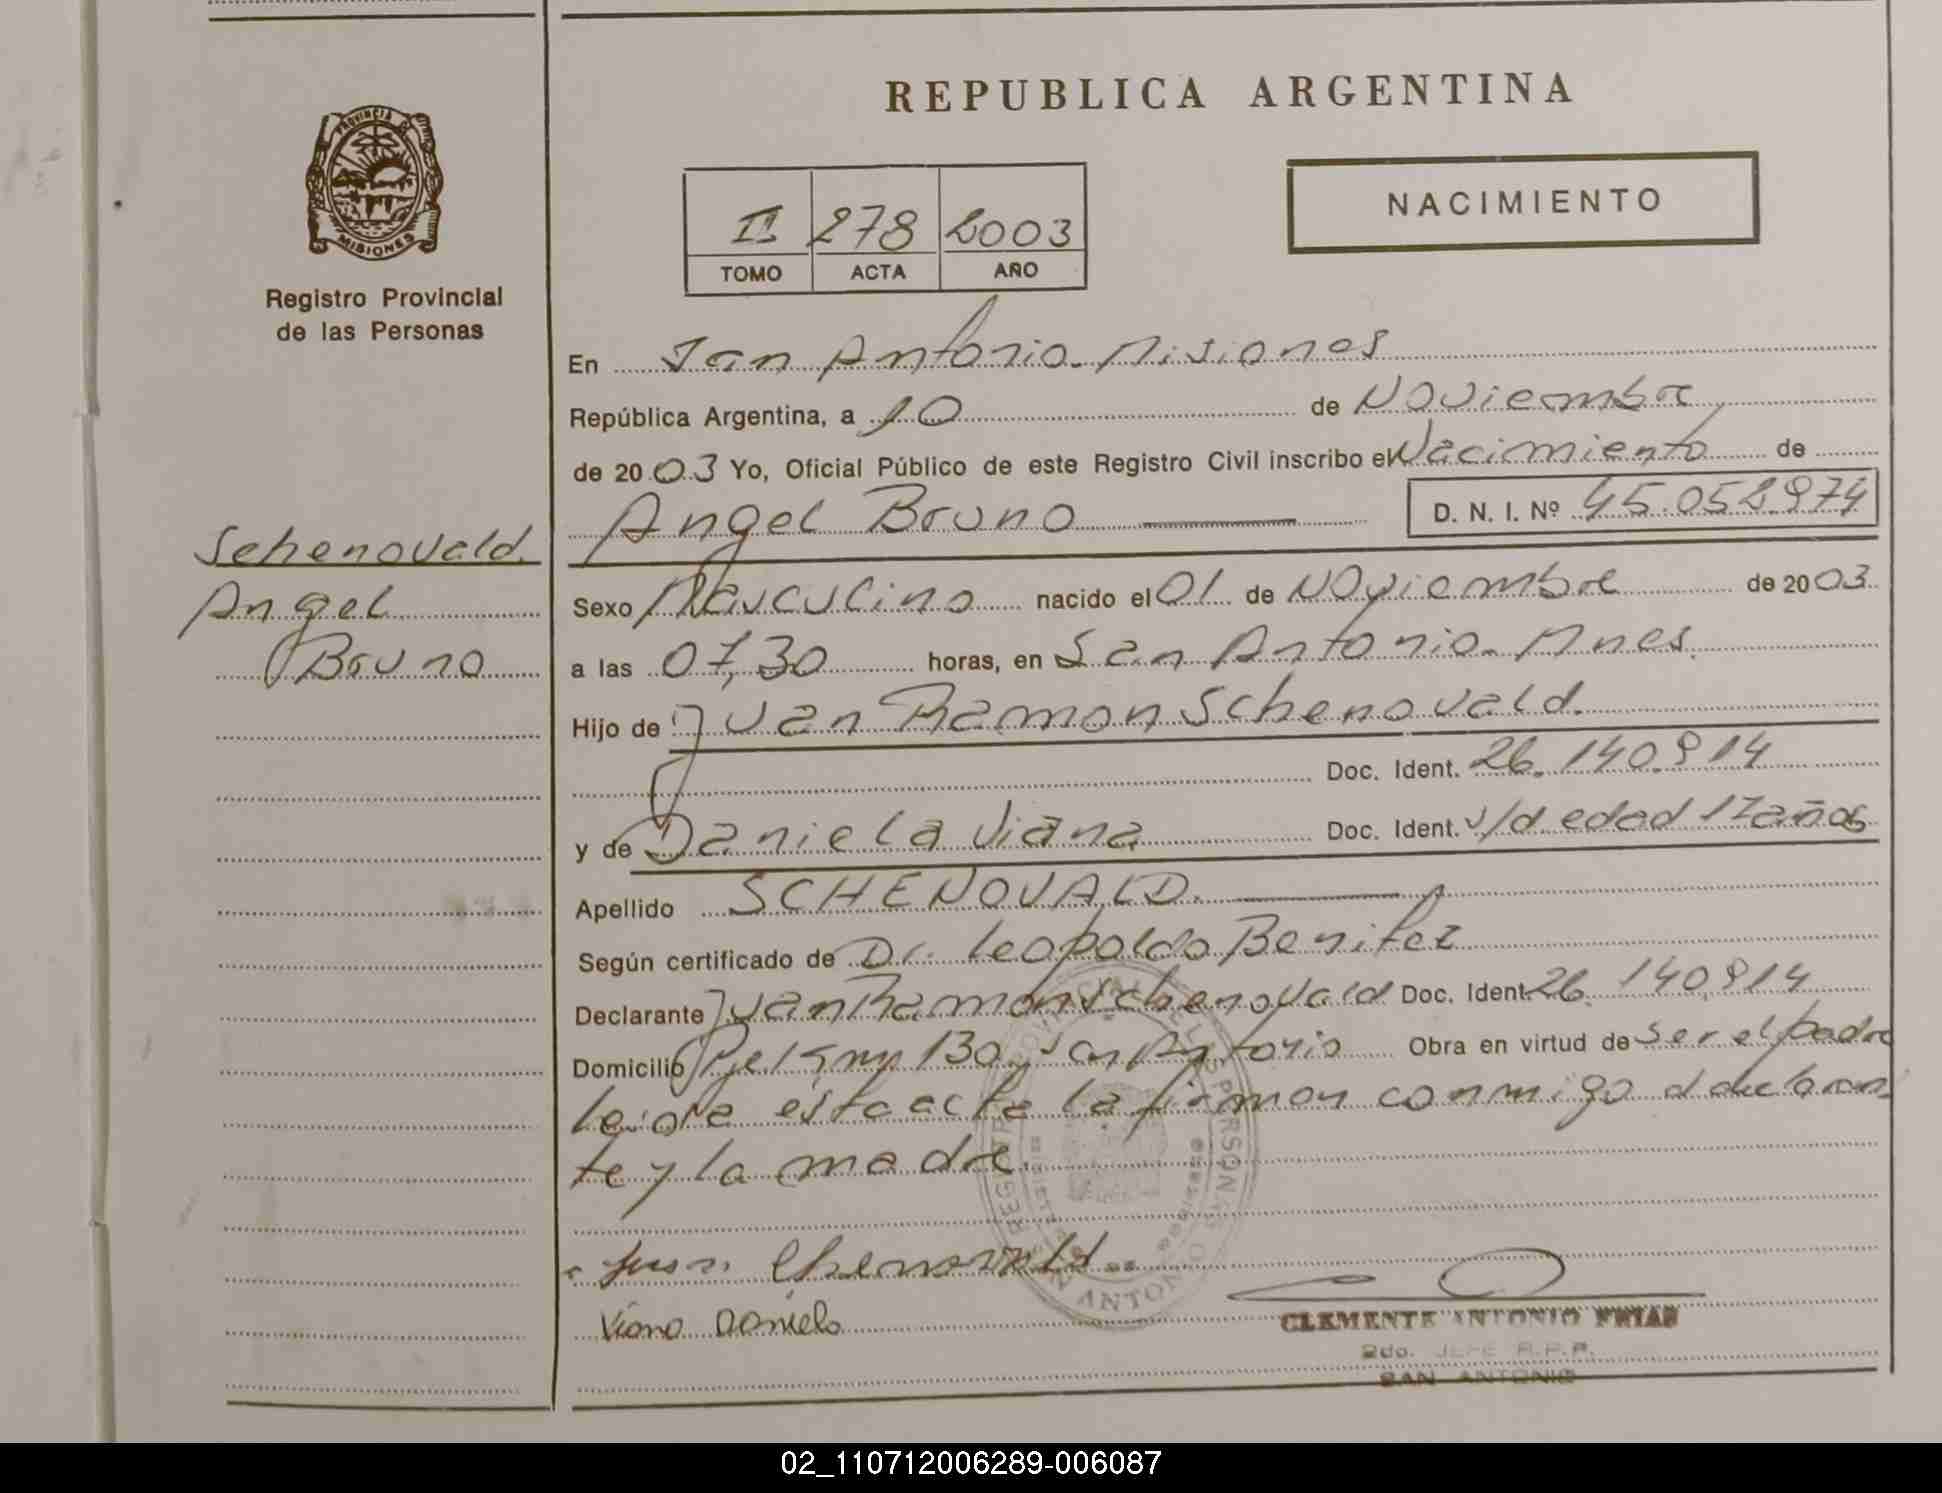 REPUBLICA ARGENTINA
PROVINCIA DE
MISIONES
Registro Provincial
de las Personas
II 278 2003
TOMO ACTA AÑO
NACIMIENTO
En San Antonio. Misiones
República Argentina, a 10 de Noviembre
de 2003 Yo, Oficial Público de este Registro Civil inscribo el Nacimiento de
Angel Bruno D. N. I. Nº
Schenovald.
Angel
Bruno
Sexo Masculino nacido el 01 de Noviembre de 2003
a las 07,30 horas, en San Antonio. Mnes.
Hijo de Juan Ramon Schenovald.
Doc. Ident. 26.140.914
y de Daniela Viana Doc. Ident. s/d edad 17 años
Apellido SCHENOVALD.
Según certificado de Dr. Leopoldo Benitez
Declarante Juan Ramon Schenovald Doc. Ident. 26.140.914
Domicilio 130 San Antonio Obra en virtud de ser el padre
Leida esta acta la firman conmigo declaran
te y la madre.
Juan Chenovald
Viana Daniela
CLEMENTE ANTONIO FRIAS
2do. JEFE R.P.P.
SAN ANTONIO
02_110712006289-006087